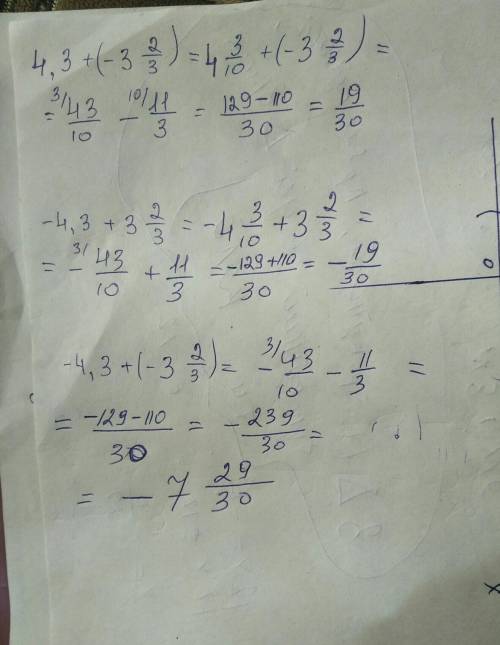 4,3 + (-3 2/3) = 4 3/10 + (-3 2/3) =
= 3/ 43/10 - 10/ 11/3 = (129-110)/30 = 19/30
-4,3 + 3 2/3 = -4 3/10 + 3 2/3 =
= - 3/ 43/10 + 11/3 = (-129+110)/30 = -19/30
0
-4,3 + (-3 2/3) = - 3/ 43/10 - 11/3 =
= (-129-110)/30 = - 239/30 =
= - 7 29/30
x